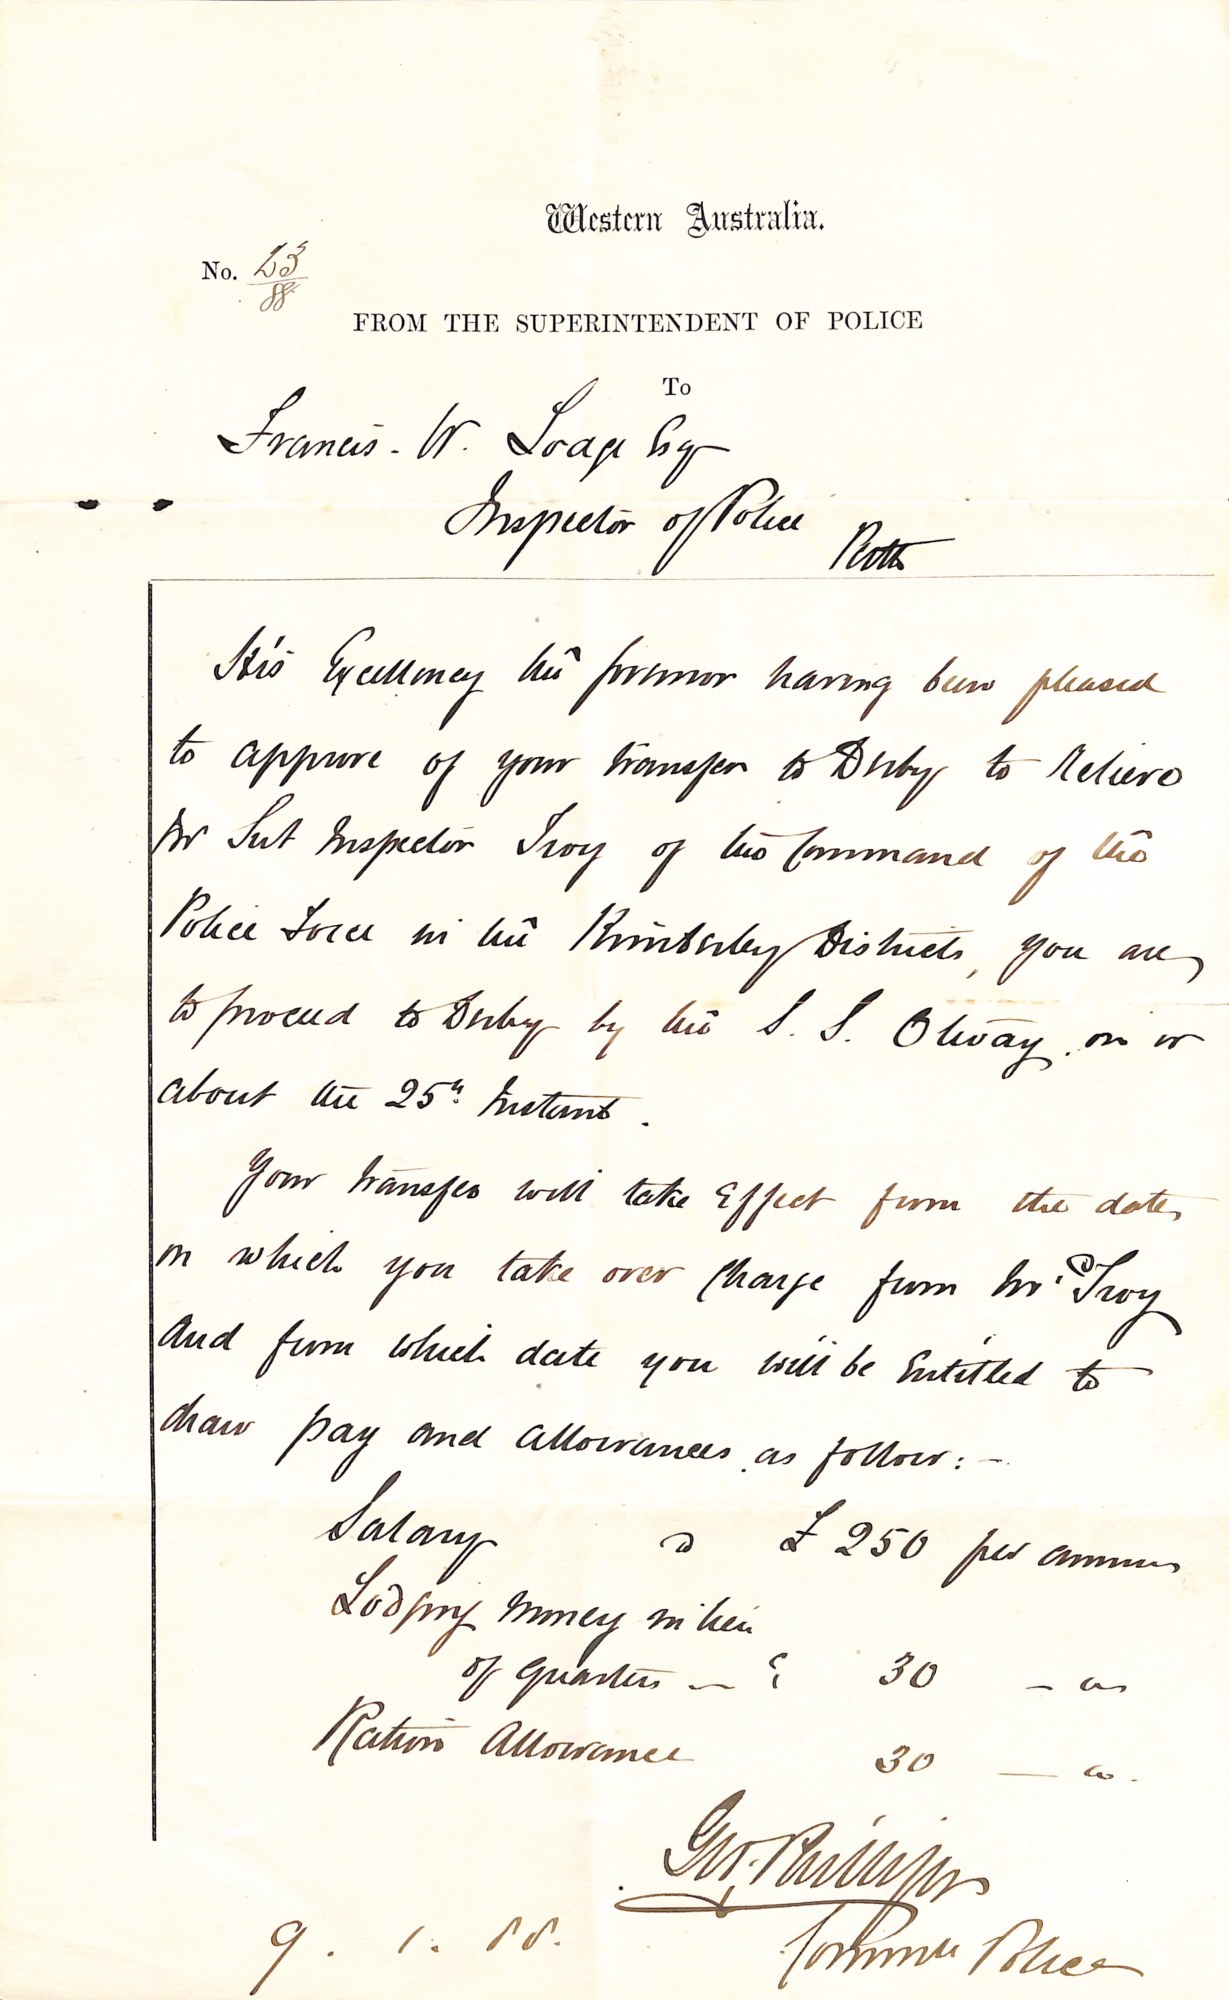 Western Australia.
No. 23/88
FROM THE SUPERINTENDENT OF POLICE
To
Francis. W. Lodge Esq
Inspector of Police
His Excellency the Governor having been pleased
to approve of your transfer to Derby to relieve
Mr Sub Inspector Troy of the Command of the
Police Force in the Kimberley Districts, you are
to proceed to Derby by the S. S. Otway on or
about the 25th Instant.
Your transfer will take effect from the date
on which you take over charge from Mr. Troy
and from which date you will be entitled to
draw pay and allowances as follow:-
Salary £ 250 per annum
Lodging money in lieu
of quarters 30
Ration Allowance 30
Geo. Phillips
Police
9. 1. 88.